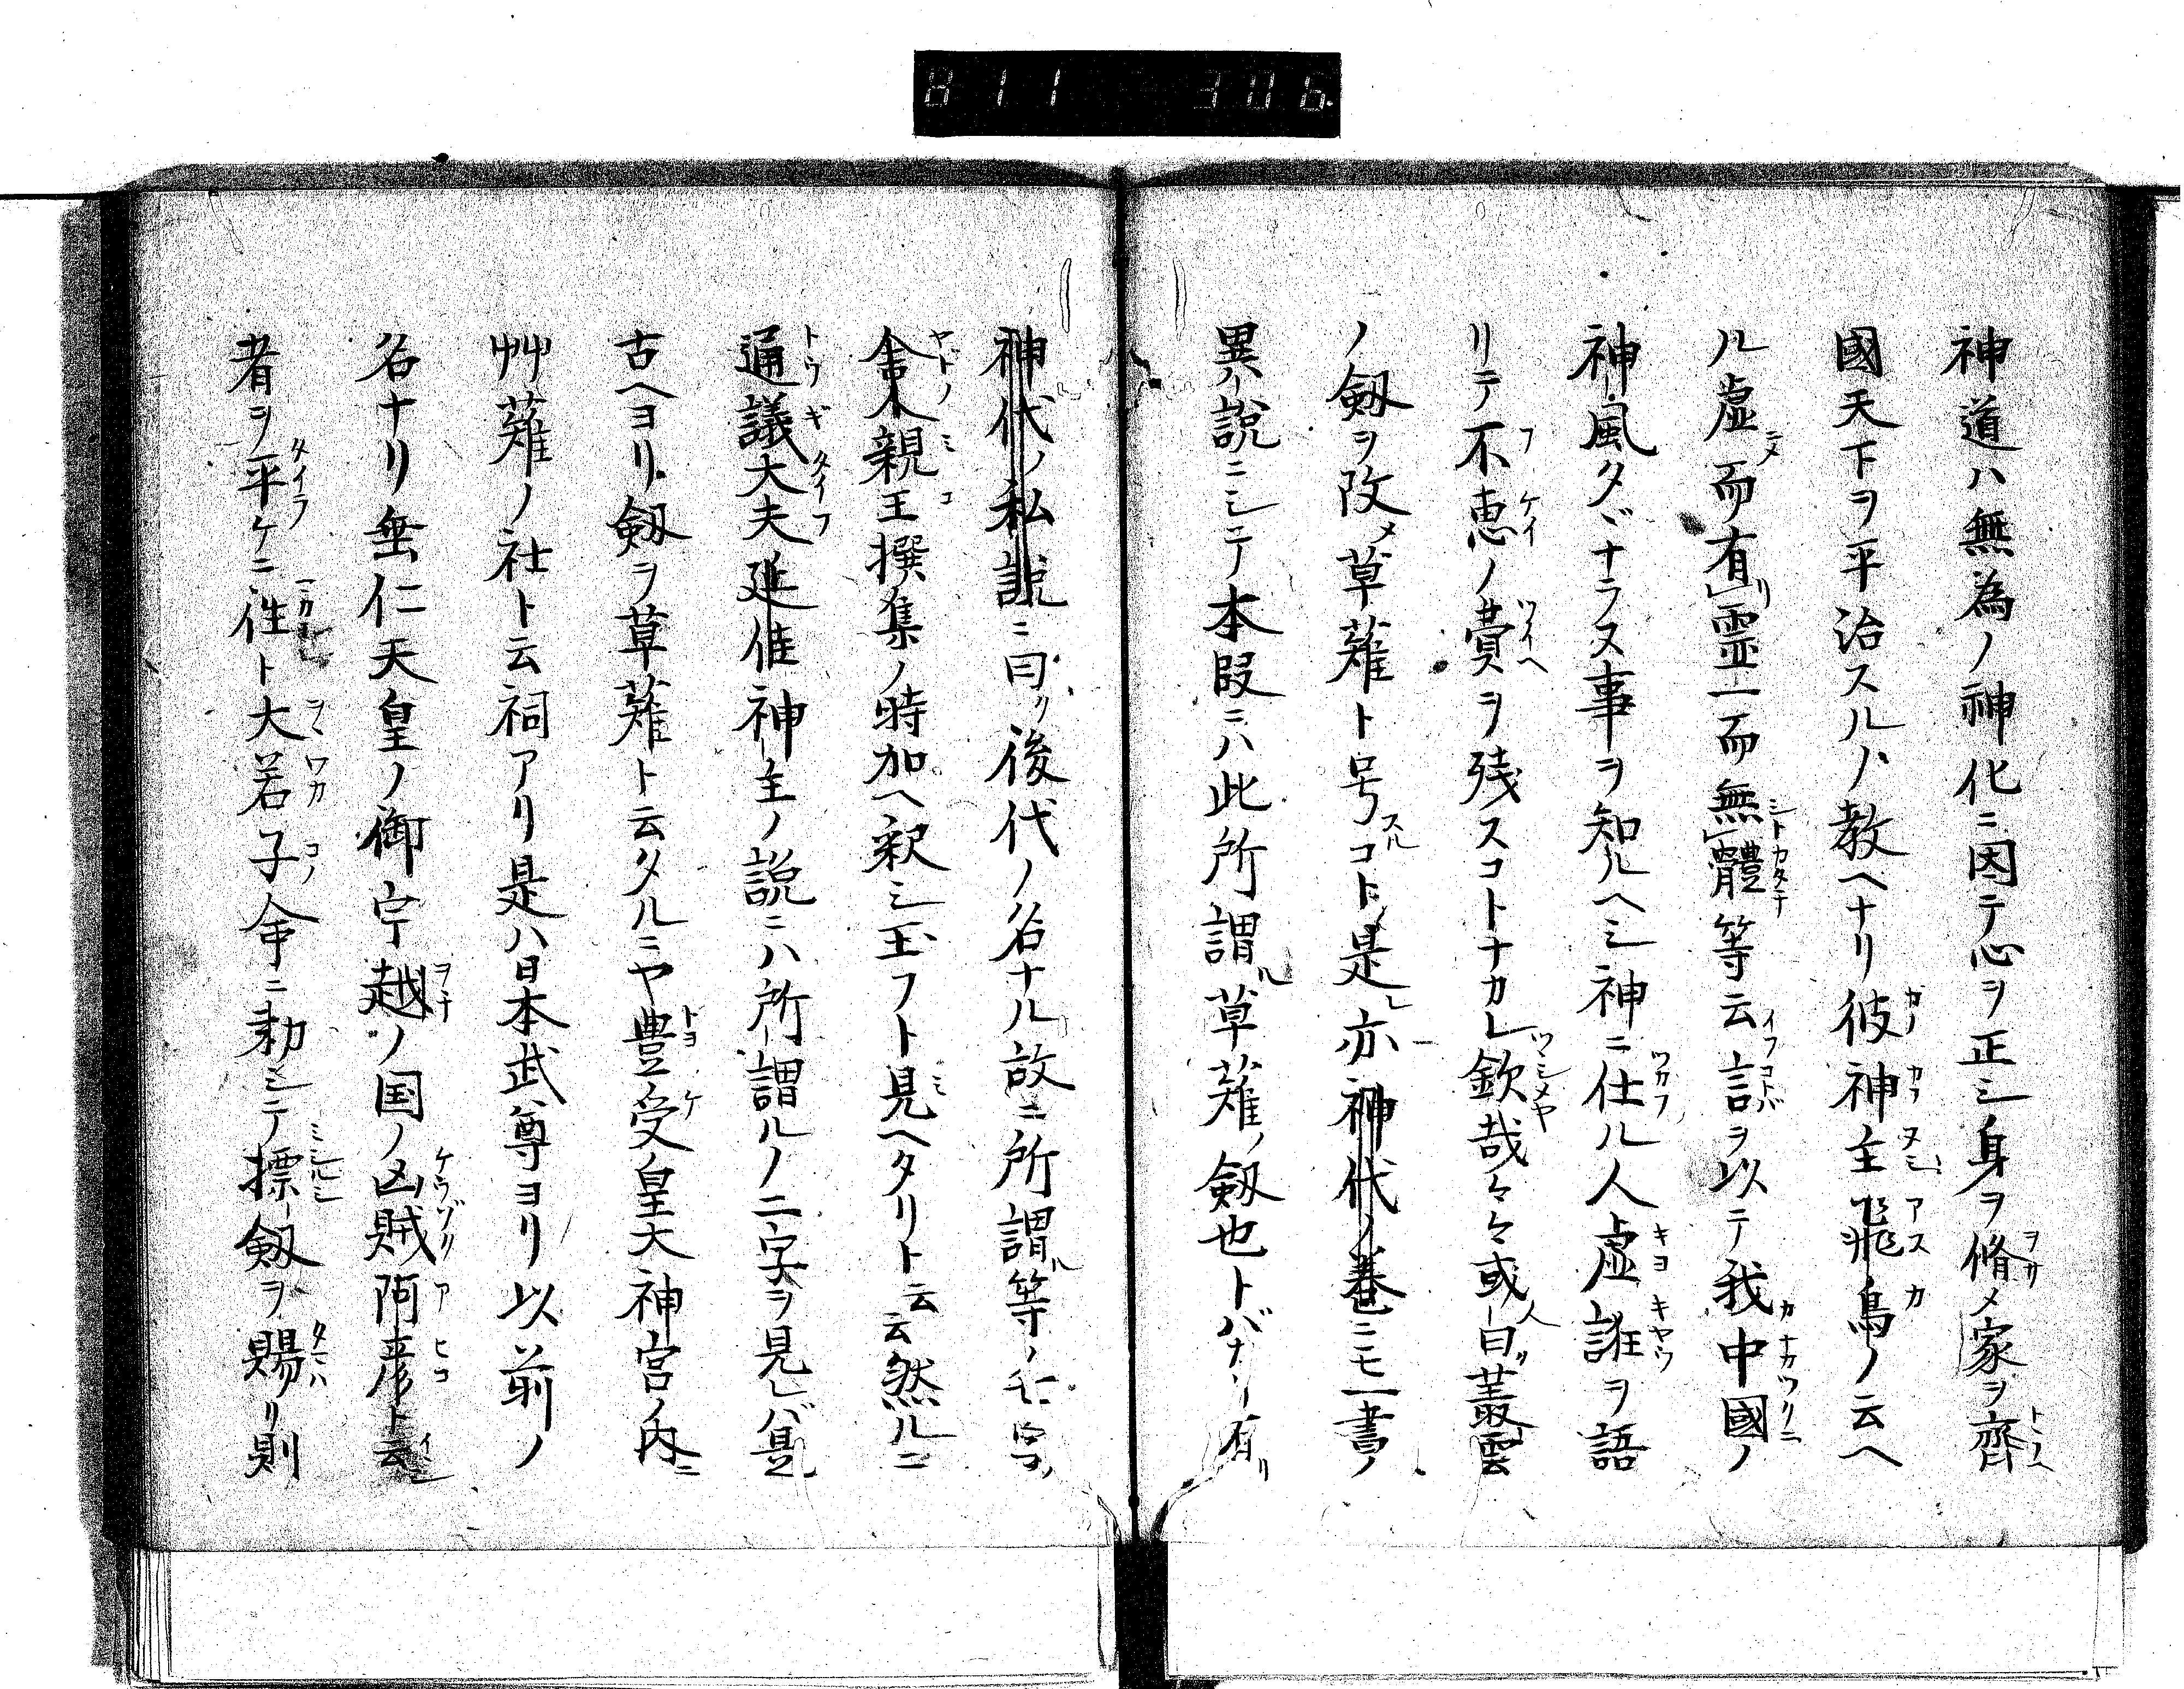 811 306.
神道ハ無為ノ神化ニ因テ心ヲ正シ身ヲ脩メ家ヲ齊
國天下ヲ平治スルノ教ヘナリ彼神主飛鳥ノ云ヘ
ル虚而有霊一而無體等云言ヲ以テ我中國ノ
神風タヾナラヌ事ヲ知ルヘシ神ニ仕ル人虚誑ヲ語
リテ不恵ノ費ヲ残スコトナカレ欽哉々々或曰叢雲
ノ劔ヲ改メ草薙ト号スルコト是レ亦神代ノ巻ニモ一書ノ
異説ニシテ本段ニハ此所謂ル草薙ノ劔也トバカリ有リ
神代ノ私説ニ曰ク後代ノ名ナル故ニ所謂ル等ノ
舎人親王撰集ノ時加ヘ釈シ玉フト見ヘタリト云云然ルニ
通議大夫延佳神主ノ説ニハ所謂ルノ二字ヲ見レバ是
古ヘヨリ劔ヲ草薙ト云タルニヤ豊受皇大神宮ノ内ニ
艸薙ノ社ト云祠アリ是ハ日本武尊ヨリ以前ノ
名ナリ垂仁天皇ノ御宇越ノ国ノ凶賊阿彦ト云
者ヲ平ケニ徃ト大若子命ニ勅シテ標劔ヲ賜リ則